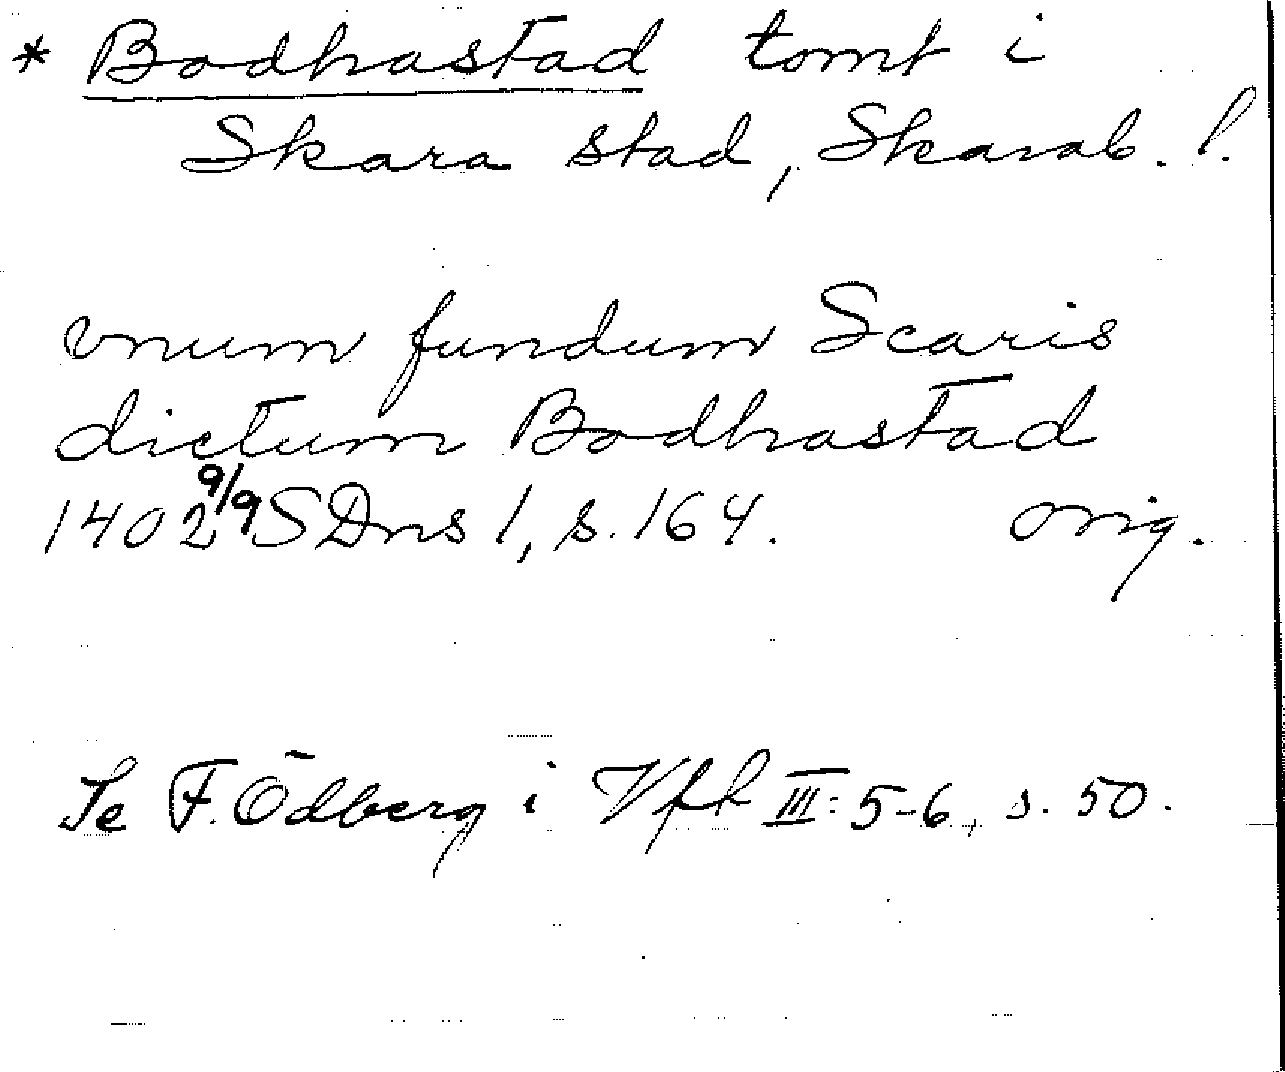 * Bodhastad tomt i
Skara stad, Skarab. l.
vnum fundum Scaris
dictum Bodhastad
1402 9/9 SDns 1, s. 164. orig.
Se F. Ödberg i Vfft III: 5-6, s. 50.